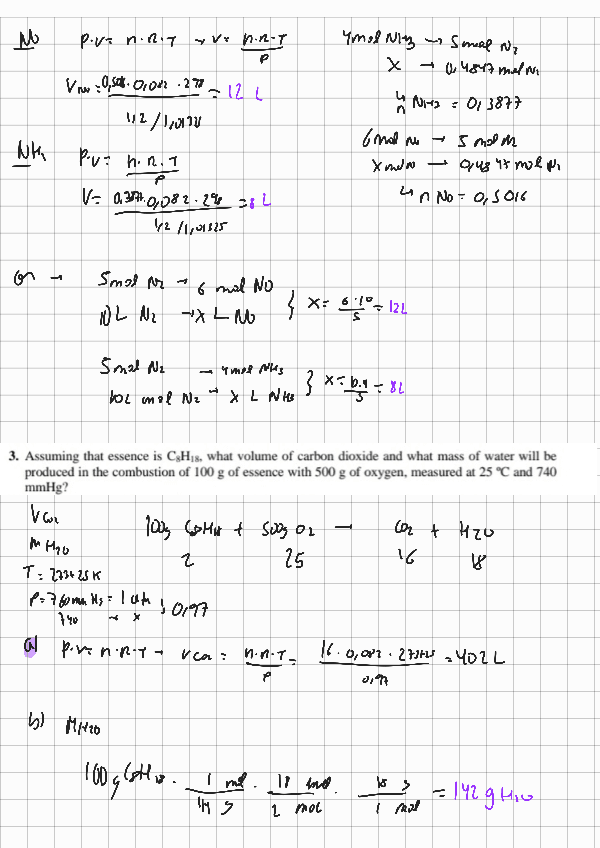 No P.V = n.R.T → V = n.R.T / P
V_NO = 0,508 . 0,082 . 298 / 1/2 / 1,01325 = 12 L
4 mol NH3 → 5 mol N2
X → 0,4847 mol N2
↳ n NH3 = 0,3877
6 mol No → 5 mol N2
X mol No → 0,4847 mol N2
↳ n No = 0,5016
NH3 P.V = n.R.T / P
V = 0,387.0,082.298 / 1/2 / 1,01325 = 8 L
5 mol N2 → 6 mol NO
10 L N2 → X L No } X = 6.10 / 5 = 12L
5 mol N2 → 4 mol NH3
10L mol N2 → X L NH3 } X = 10.4 / 5 = 8L
3. Assuming that essence is C8H18, what volume of carbon dioxide and what mass of water will be
produced in the combustion of 100 g of essence with 500 g of oxygen, measured at 25 ºC and 740
mmHg?
V CO2
M H2O
T = 273+25 K
P = 760 mm Hg = 1 atm
740 → x ; 0,97
100g C8H18 + 500g O2 → CO2 + H2O
2 25 16 18
a) P.V = n.R.T → V CO2 = n.R.T / P = 16.0,082.273+25 / 0,97 = 402 L
b) M H2O
100 g C8H18 . 1 mol / 114 g . 18 mol / 2 mol . 18 g / 1 mol = 142 g H2O